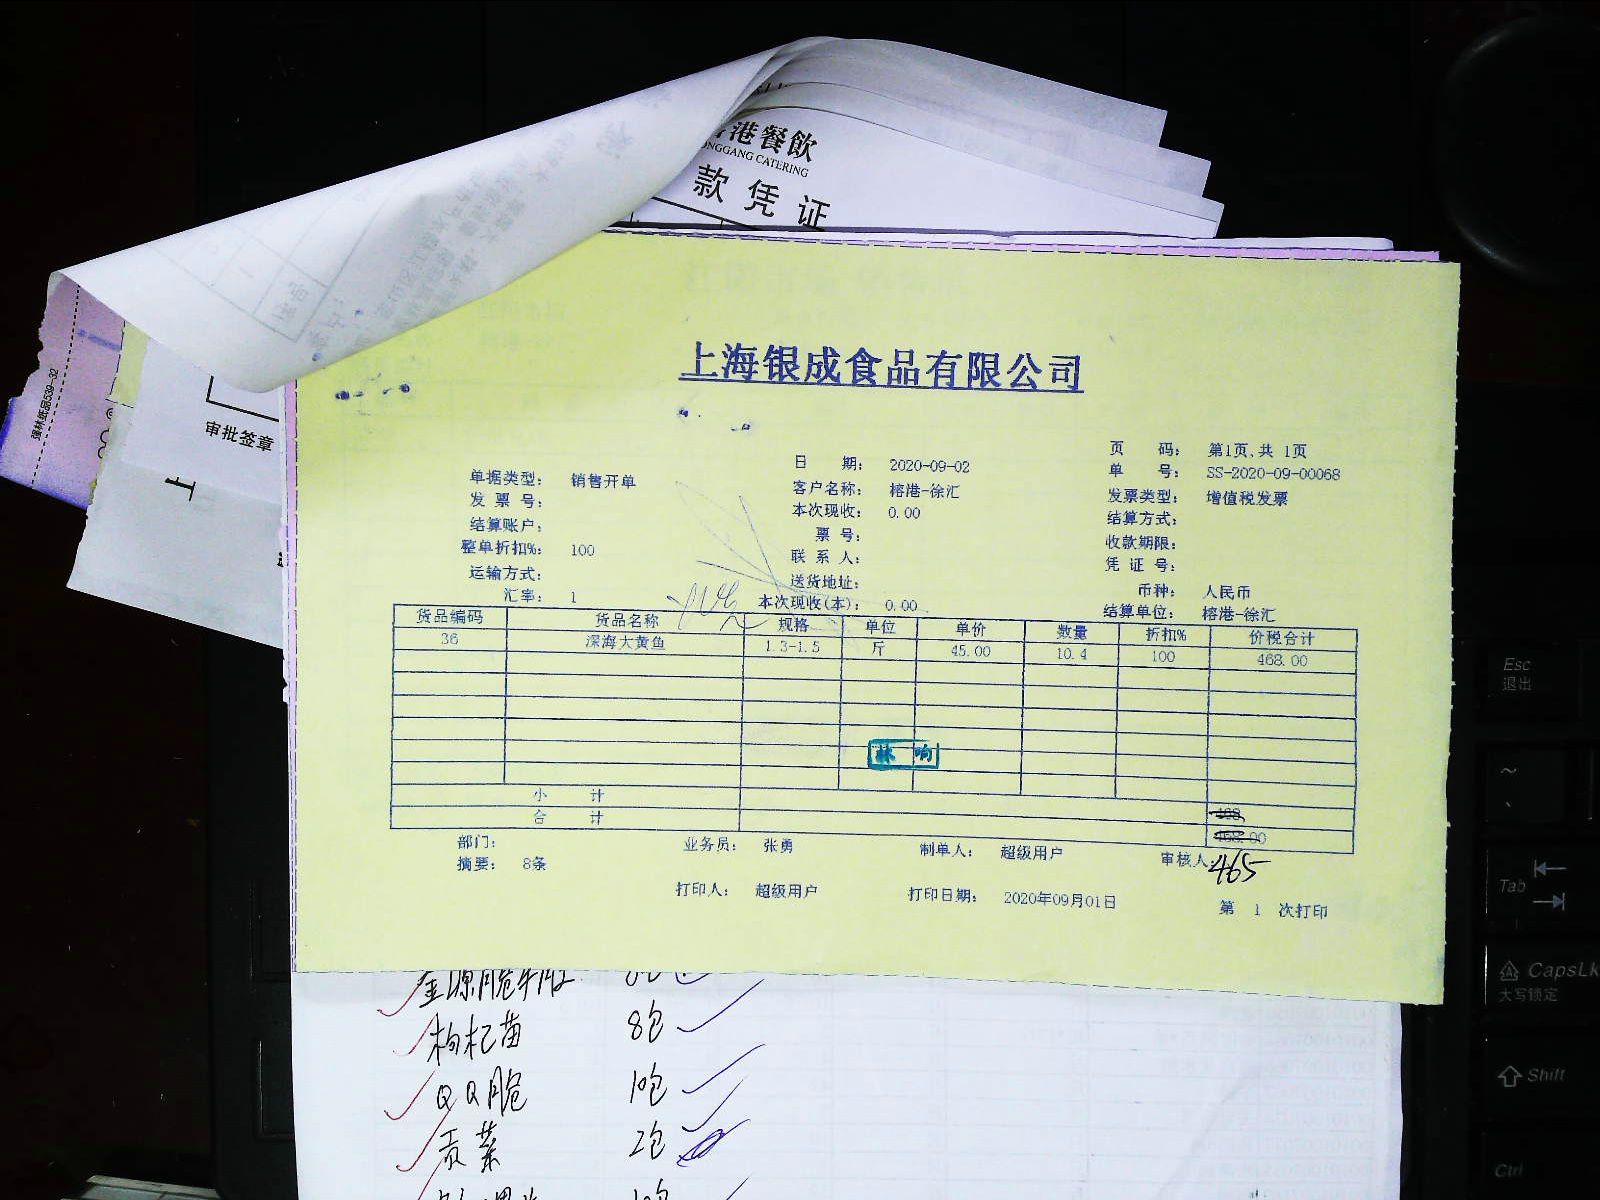 港餐飲
ONGGANG CATERING
款凭证
强林纸品539-32
审批签章
上海银成食品有限公司
页 码: 第1页,共 1页
日 期: 2020-09-02
单 号: SS-2020-09-00068
单据类型: 销售开单
客户名称: 榕港-徐汇
发票类型: 增值税发票
发 票 号:
本次现收: 0.00
结算方式:
结算账户:
票 号:
收款期限:
整单折扣%: 100
联 系 人:
凭 证 号:
运输方式:
送货地址:
币种: 人民币
汇率: 1
本次现收(本): 0.00
结算单位: 榕港-徐汇
货品编码 货品名称 规格 单位 单价 数量 折扣% 价税合计
36 深海大黄鱼 1.3-1.5 斤 45.00 10.4 100 468.00
林响
小 计 468
合 计 468.00
465
部门: 业务员: 张勇 制单人: 超级用户 审核人:
摘要: 8条
打印人: 超级用户 打印日期: 2020年09月01日 第 1 次打印
枸杞苗 8包
QQ脆 10包
贡菜 2包
Esc
退出
~
Tab
CapsLk
大写锁定
Shift
Ctrl